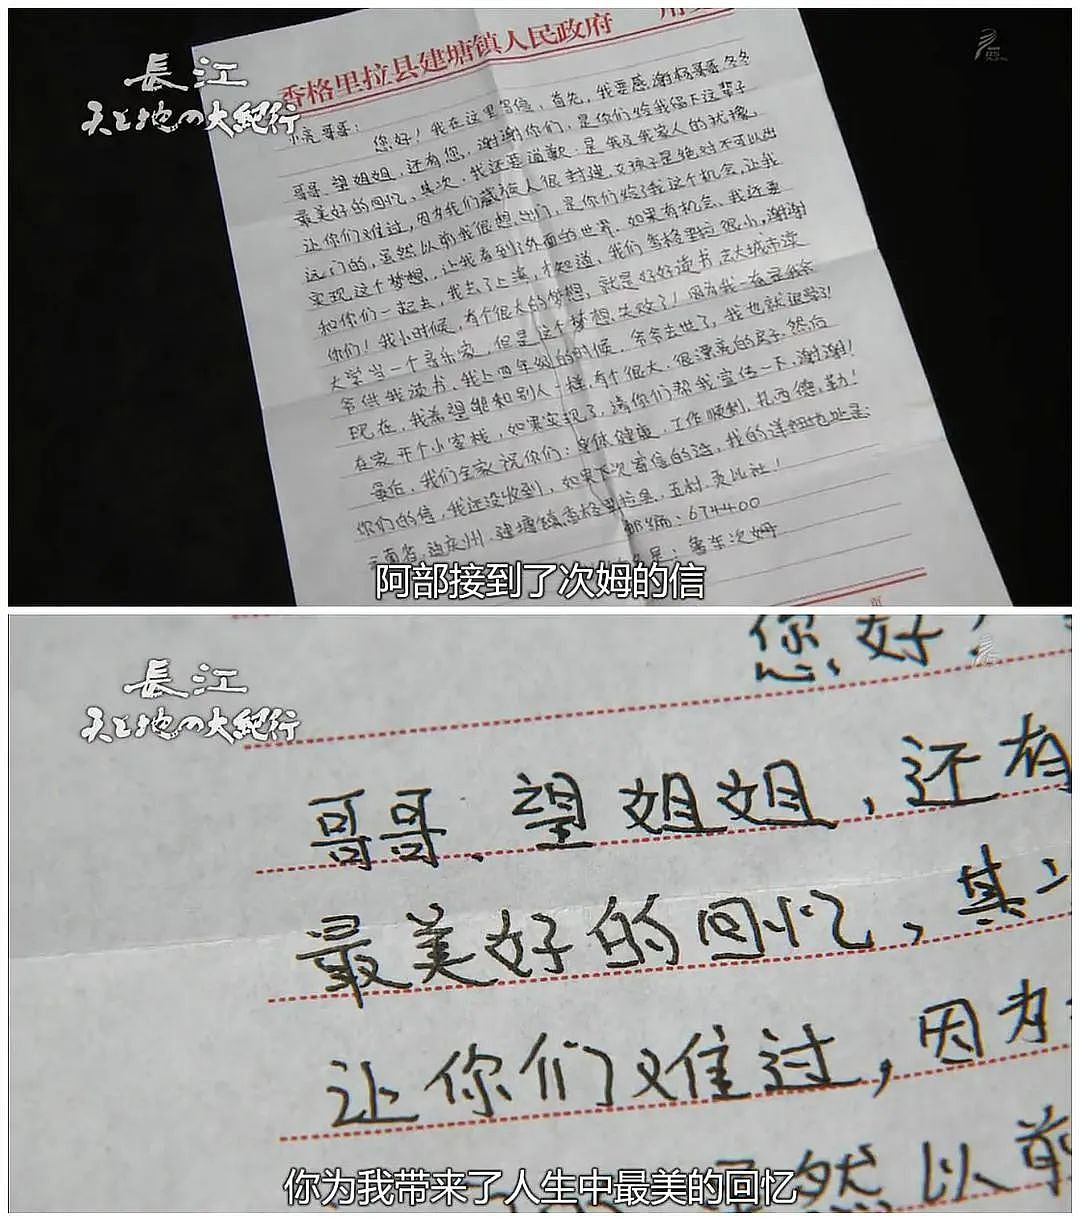 長江
天と地の大紀行
香格里拉县建塘镇人民政府
小亮哥哥:
您好!我在这里写信,首先,我要感谢杨哥哥,冬冬
哥哥、望姐姐,还有您,谢谢你们,是你们给我留下这辈子
最美好的回忆,其次,我还要道歉,是我及我家人的犹豫,
让你们难过,因为我们藏族人很封建,女孩子是绝对不可以出
远门的,虽然以前我很想出们,是你们给了我这个机会,让我
实现这个梦想,让我看到了外面的世界,如果有机会、我还要
和你们一起去,我去了上海,才知道,我们香格里拉很小,谢谢
你们!我小时候,有个很大的梦想,就是好好读书去大城市读
大学当一个音乐家,但是这个梦想失败了!因为我一直是我爷
爷供我读书,我上四年级的时候,爷爷去世了,我也就退学了!
现在,我希望能和别人一样,有个很大、很漂亮的房子、然后
在家开个小客栈,如果实现了,请你们帮我宣传一下,谢谢!
最后,我们全家祝你们:身体健康,工作顺利,扎西德勒!
你们的信,我还没收到,如果下次寄信的话,我的详细地址是:
云南省,迪庆州,建塘镇香格里拉县,五村,贡比社!
邮编:674400
名是:鲁茸次姆
页
阿部接到了次姆的信
長江
天と地の大紀行
您好!
哥哥、望姐姐,还有
最美好的回忆,其
让你们难过,因为
虽然以前
你为我带来了人生中最美的回忆